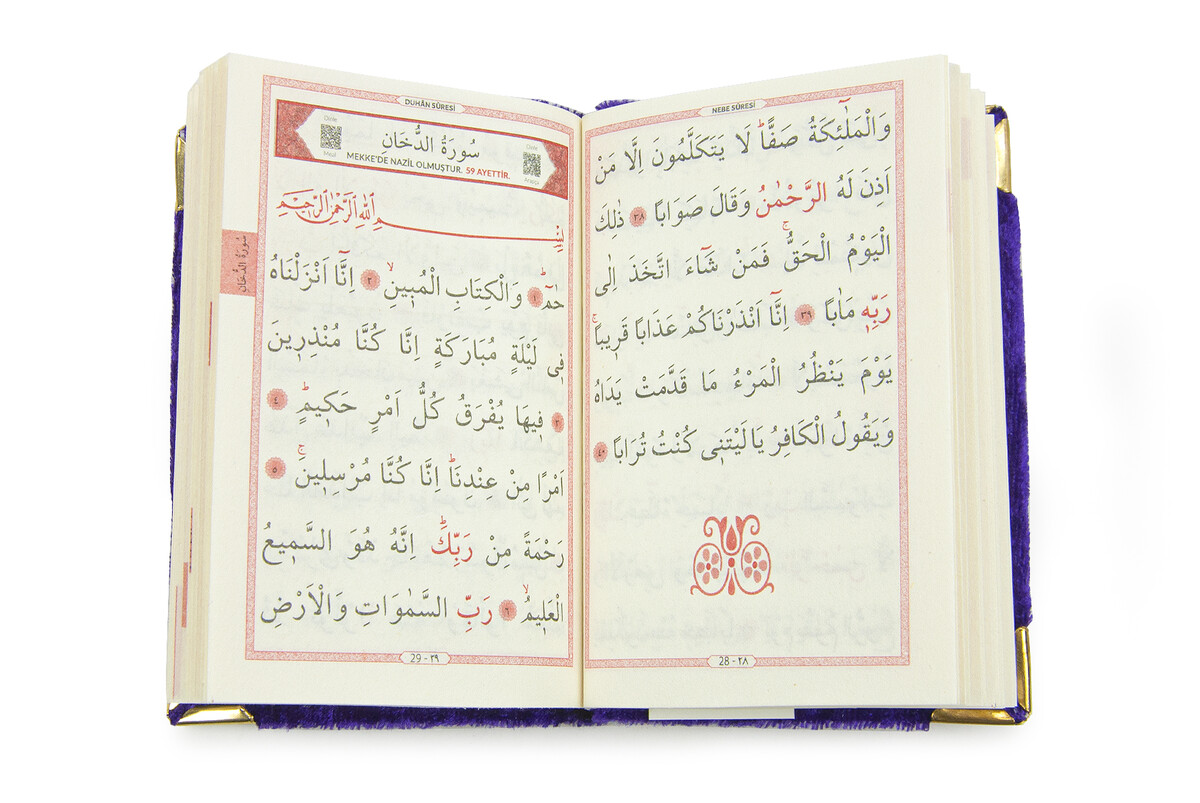 NEBE SÛRESİ
وَالْمَلٰٓئِكَةُ صَفًّاۜ لَا يَتَكَلَّمُونَ اِلَّا مَنْ
اَذِنَ لَهُ الرَّحْمٰنُ وَقَالَ صَوَابًا ٣٨ ذٰلِكَ
الْيَوْمُ الْحَقُّۚ فَمَنْ شَٓاءَ اتَّخَذَ اِلٰى
رَبِّه۪ مَاٰبًا ٣٩ اِنَّٓا اَنْذَرْنَاكُمْ عَذَابًا قَر۪يبًاۚ
يَوْمَ يَنْظُرُ الْمَرْءُ مَا قَدَّمَتْ يَدَاهُ
وَيَقُولُ الْكَافِرُ يَا لَيْتَن۪ي كُنْتُ تُرَابًا ٤٠
28 - ٢٨
DUHÂN SÛRESİ
سُورَةُ الدُّخَانِ
MEKKE'DE NAZİL OLMUŞTUR. 59 AYETTİR.
Dinle
Dinle
بِسْمِ اللّٰهِ الرَّحْمٰنِ الرَّح۪يمِ
حٰمٓۜ ١ وَالْكِتَابِ الْمُب۪ينِۙ ٢ اِنَّٓا اَنْزَلْنَاهُ
ف۪ي لَيْلَةٍ مُبَارَكَةٍ اِنَّا كُنَّا مُنْذِر۪ينَ
٣ ف۪يهَا يُفْرَقُ كُلُّ اَمْرٍ حَك۪يمٍۜ ٤
اَمْرًا مِنْ عِنْدِنَاۜ اِنَّا كُنَّا مُرْسِل۪ينَۚ ٥
رَحْمَةً مِنْ رَبِّكَۜ اِنَّهُ هُوَ السَّم۪يعُ
الْعَل۪يمُۙ ٦ رَبِّ السَّمٰوَاتِ وَالْاَرْضِ
29 - ٢٩
سُورَةُ الدُّخَانِ